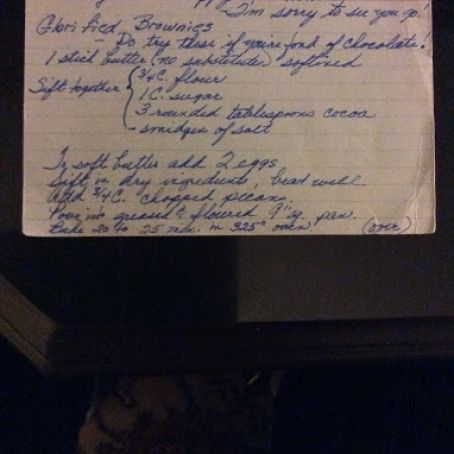 I'm sorry to see you go!
Glorified Brownies
Do try these if you're fond of chocolate!
1 stick butter (no substitutes) softened
Sift together { 3/4 C. flour
1 C. sugar
3 rounded tablespoons cocoa
smidgen of salt
To soft butter add 2 eggs
Sift in dry ingredients, beat well
Add 3/4 C. chopped pecans.
Pour into greased & floured 9" sq. pan.
Bake 20 to 25 min. in 325° oven. (over)